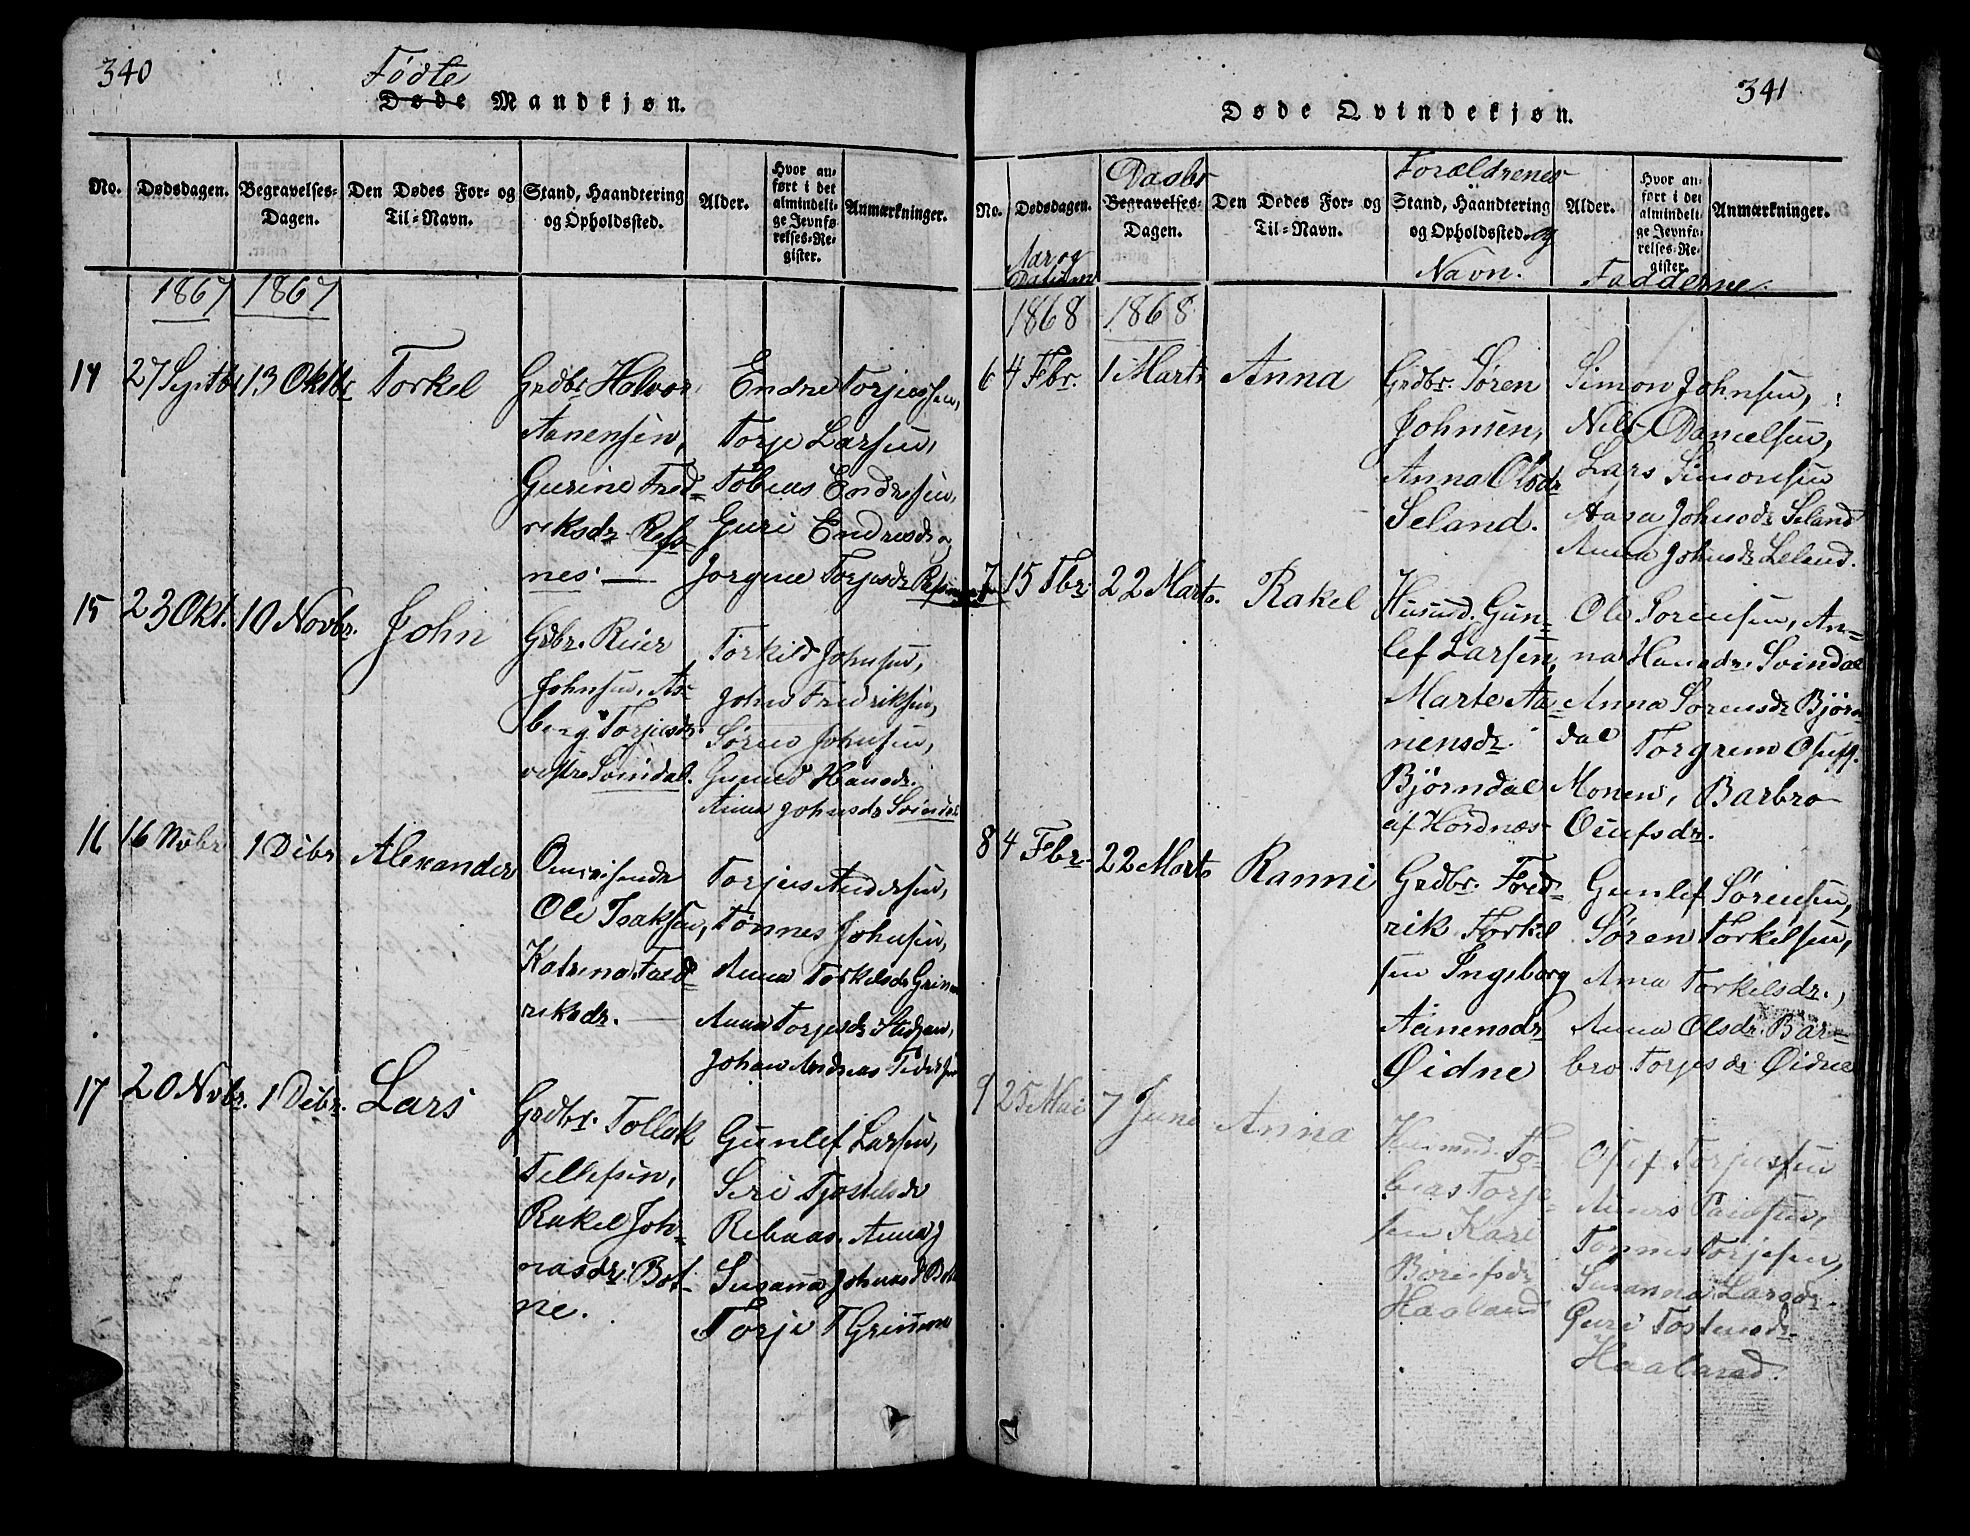 340
Fødte
Døde Mandkjøn.
No.
Dødsdagen.
Begravelses-
Dagen.
Den Dødes For- og
Til-Navn.
Stand, Haandtering
og Opholdssted.
Alder.
Hvor an-
ført i det
almindeli-
ge Jevnfø-
relses-Re-
gister.
Anmærkninger.
1867 1867
14 27 Septbr 13 Oktbr Torkel
Grdbr. Halvor
Aanensen,
Gurine Fred-
riksdr. Refs-
nes.
Endre Torjussen,
Torje Larsen,
Tobias Endresen,
Guri Endresdr og
Jorgine Torjesdr
15 23 Okt. 10 Novbr. John
Grbr. Reier
Johnsen, As-
berg Torjesdr
vestre Svindal.
Torkild Johnsen,
John Fredriksen,
Søren Johnsen,
Gunild Hansdr.
Anna Johnsdr Svindal
16 16 Novbr 1 Debr Alexander
Omreisende
Ole Isaksen,
Katrina Fred-
riksdr.
Torjus Andersen,
Tønnes Johnsen,
Anna Torkelsdr
Anna Torjesdr
Johan Andreas
17 20 Novbr. 1 Debr. Lars
Grdbr. Tollak
Tellefsen,
Rakel Joh-
nasdr. Bot-
ne.
Gunlef Larsen,
Siri Tjostelsdr
Rebaas, Anna
Susana
Torje T
341
Døde Qvindekjøn.
No.
Dødsdagen.
Aar og
Datum
Daabs
Begravelses-
Dagen.
Den Dødes For- og
Til-Navn.
Forældrenes
Stand, Haandtering
og Opholdssted. og
Navn.
Alder.
Hvor an-
ført i det
almindeli-
ge Jevnfø-
relses-Re-
gister.
Anmærkninger.
Fadderne.
1868 1868
6 4 Fbr. 1 Marts Anna
Grdbr. Søren
Johnsen,
Anna Olsdr
Seland.
Simon Johnsen,
Nils Danielsen,
Lars Simonsen
Aasa Johnsdr Seland
Anna Johnsdr Seland.
7 15 Fbr. 22 Marts. Rakel
Husmd. Gun-
lef Larsen,
Marte Aa-
nensdr.
Bjørndal
af Hordnes
Ole Sørensen, An-
na Hansdr. Svindal
Anna Sørensdr Bjørn-
dal Torgrem
Monen, Barbro
8 4 Fbr. 22 Marts Ranni
Grdbr. Fred-
rik Torkel
sen Ingeborg
Aanensdr
Øidne
Gunlef Sørensen,
Søren Torkelsen,
Anna Torkilsdr.,
Anna Olsdr. Bar-
bro Torjesdr Øidne
9 25 Mai 7 June Anna
Husmd. To-
bias Torje-
sen Kari
Haaland
Torjussen
Tønnes Torjesen,
Susanna Larsdr
Guri Tostensdr
Haaland.